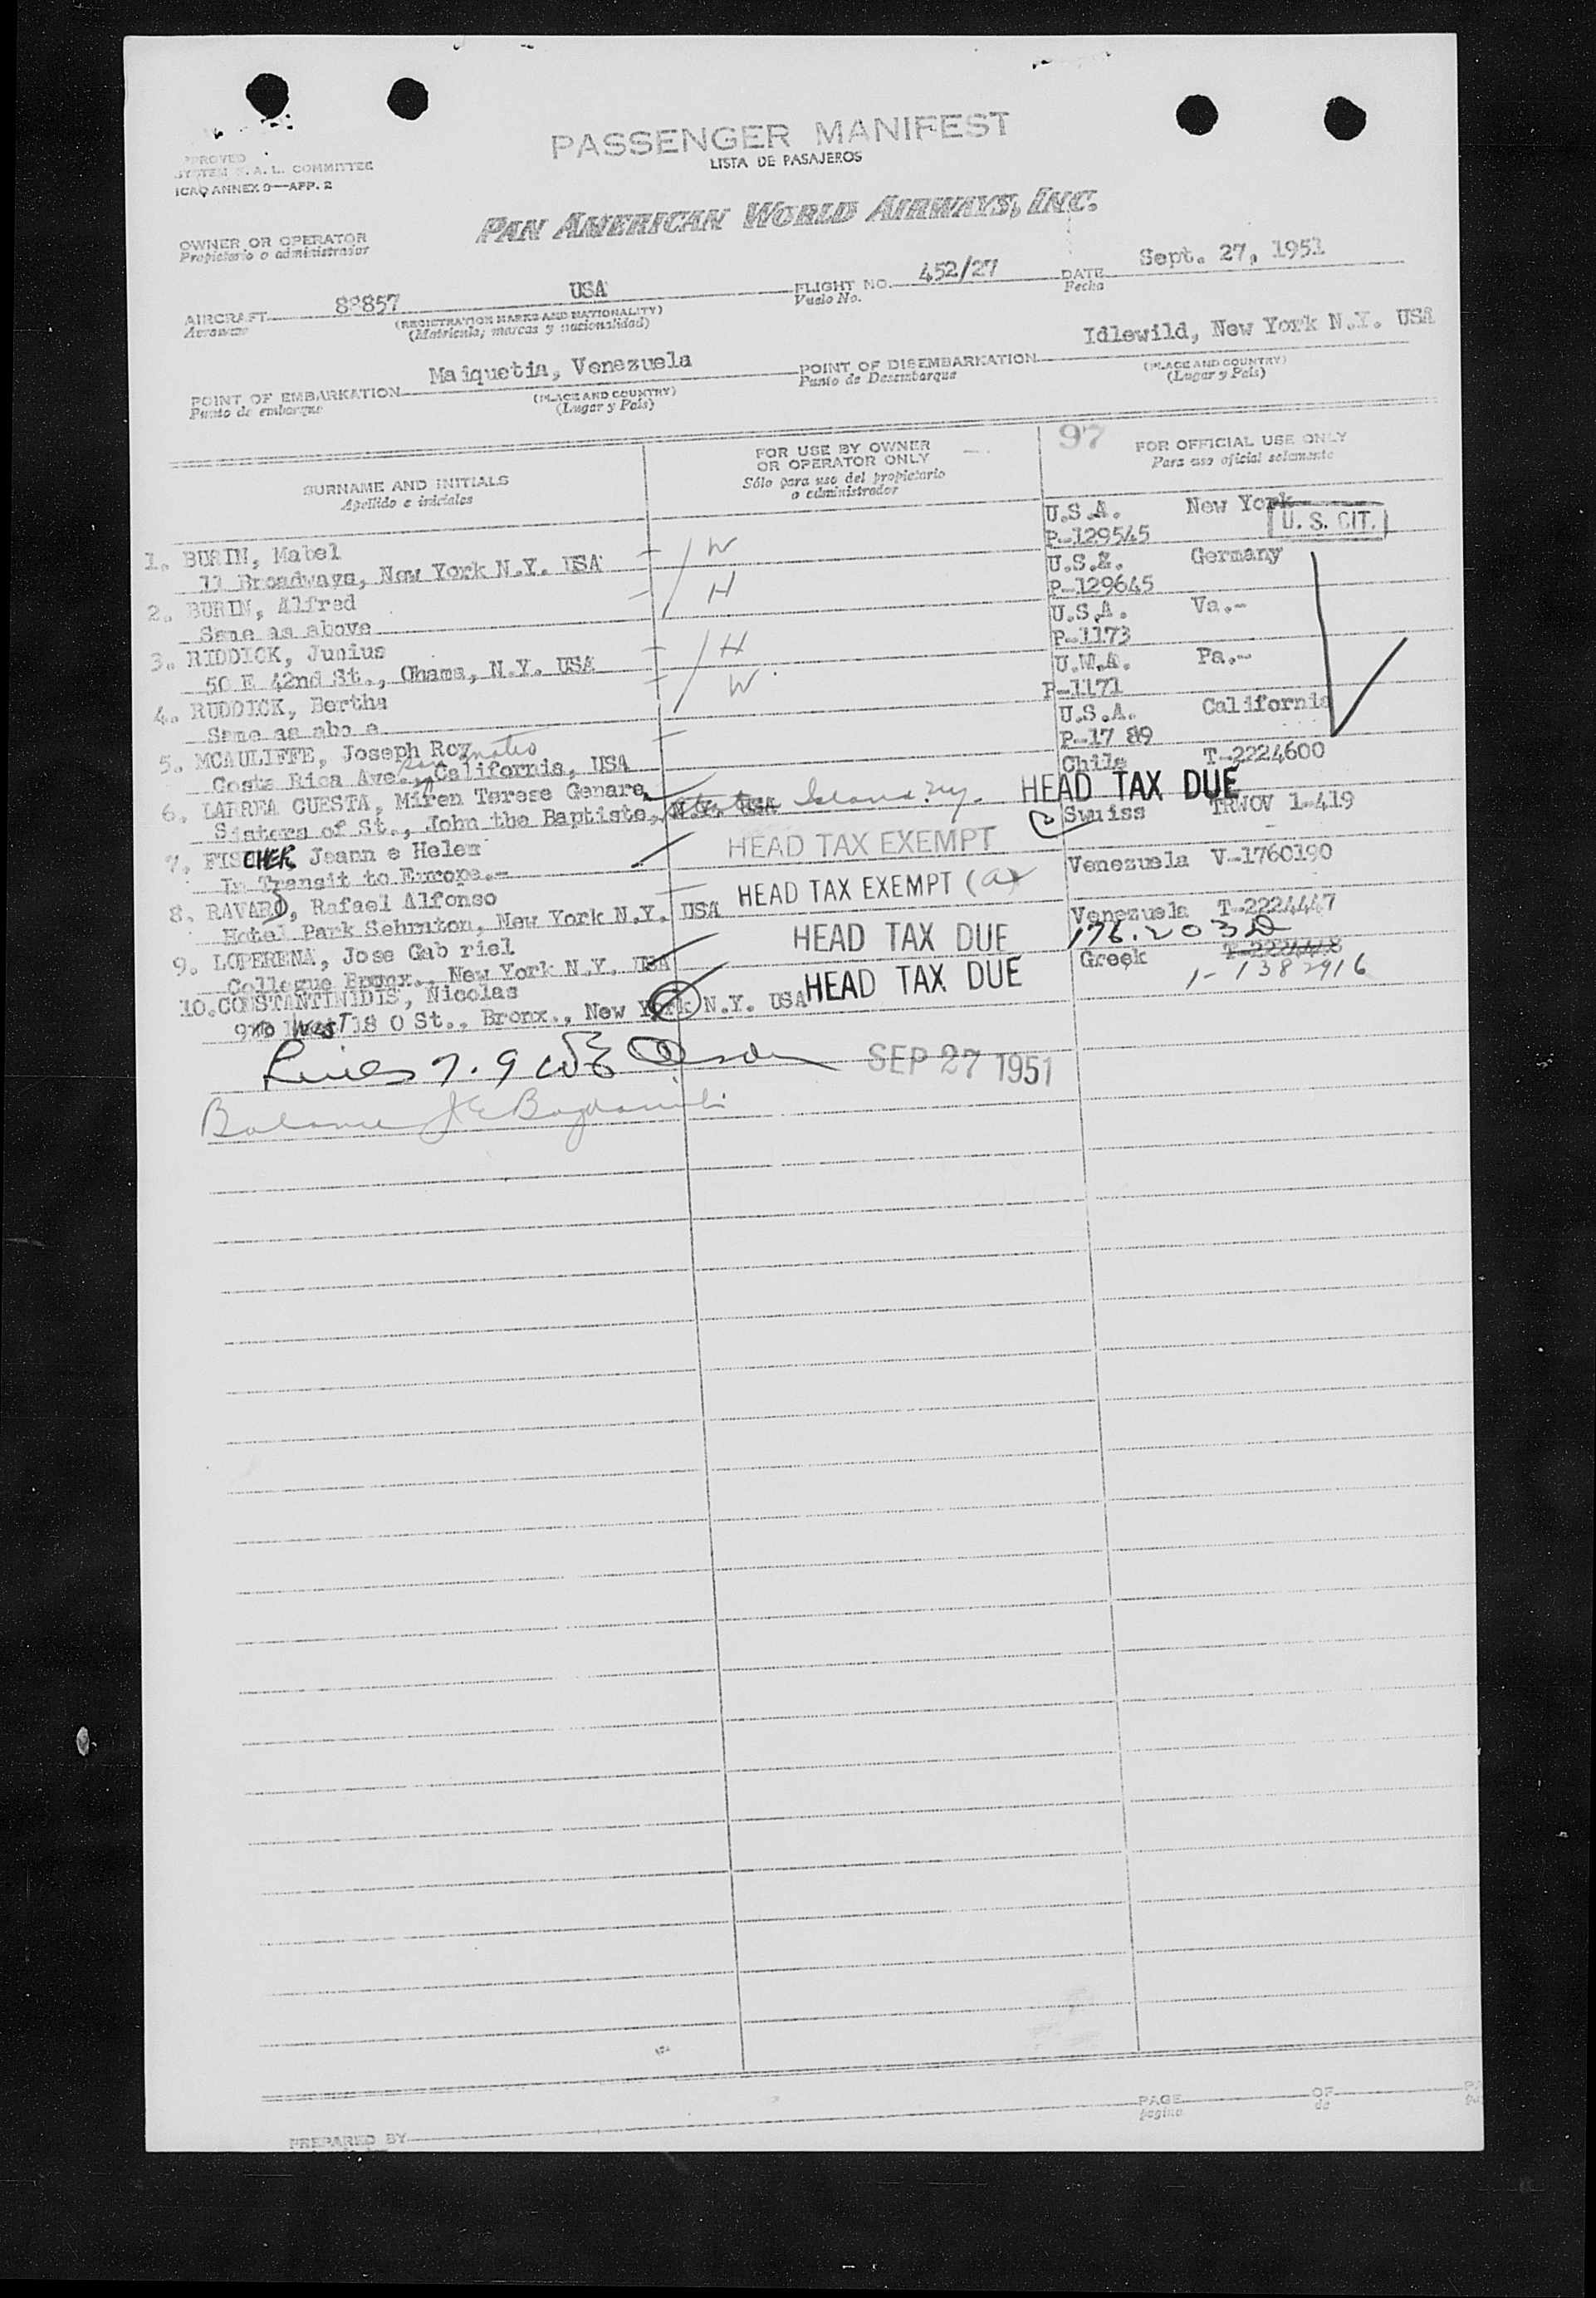 PASSENGER MANIFEST
LISTA DE PASAJEROS
COMMITTEE
ICAO ANNEX 9—APP. 2
PAN AMERICAN WORLD AIRWAYS, INC.
OWNER OR OPERATOR
Propietario o administrador
AIRCRAFT 88857 USA FLIGHT NO. 452/27 DATE Sept. 27, 1951
Aeronave (REGISTRATION MARKS AND NATIONALITY) Vuelo No. Fecha
(Matricula, marcas y nacionalidad)
POINT OF EMBARKATION Maiquetia, Venezuela POINT OF DISEMBARKATION Idlewild, New York N.Y. USA
Punto de embarque (PLACE AND COUNTRY) Punto de Desembarque (PLACE AND COUNTRY)
(Lugar y País) (Lugar y País)
SURNAME AND INITIALS
Apellido e iniciales
FOR USE BY OWNER
OR OPERATOR ONLY
Sólo para uso del propietario
o administrador
97 FOR OFFICIAL USE ONLY
Para uso oficial solamente
1. BURIN, Mabel W U.S.A. New York
11 Broadways, New York N.Y. USA P-129545 U. S. CIT.
2. BURIN, Alfred H U.S.&. Germany
Same as above P-129645
3. RIDDICK, Junius H U.S.A. Va.-
50 E 42nd St., Ohama, N.Y. USA P-1173
4. RUDDICK, Bertha W U.M.A. Pa.-
Same as abo e P-1171
5. MCAULIFFE, Joseph Roy U.S.A. California
Costa Rica Ave., San Mateo California, USA P-17 89
6. LARREA CUESTA, Miren Terese Genare Chile T-2224600
Sisters of St., John the Baptiste, N.Y. USA Staten Island N.Y. HEAD TAX DUE
7. FISCHER, Jeann e Helen HEAD TAX EXEMPT Swuiss TRWOV 1-419
In Transit to Europe.-
8. RAVARD, Rafael Alfonso HEAD TAX EXEMPT (a) Venezuela V-1760190
Hotel Park Sehrnton, New York N.Y. USA
9. LOPERENA, Jose Gab riel HEAD TAX DUE Venezuela T-2224447
Collegue Bronx., New York N.Y. USA 176.203D
10. CONSTANTINIDIS, Nicolas HEAD TAX DUE Greek T-2224448
West 18 0 St., Bronx., New York N.Y. USA 1-1382916
Lines 7. 9 SEP 27 1951
Balance
PREPARED BY
PAGE OF
página de